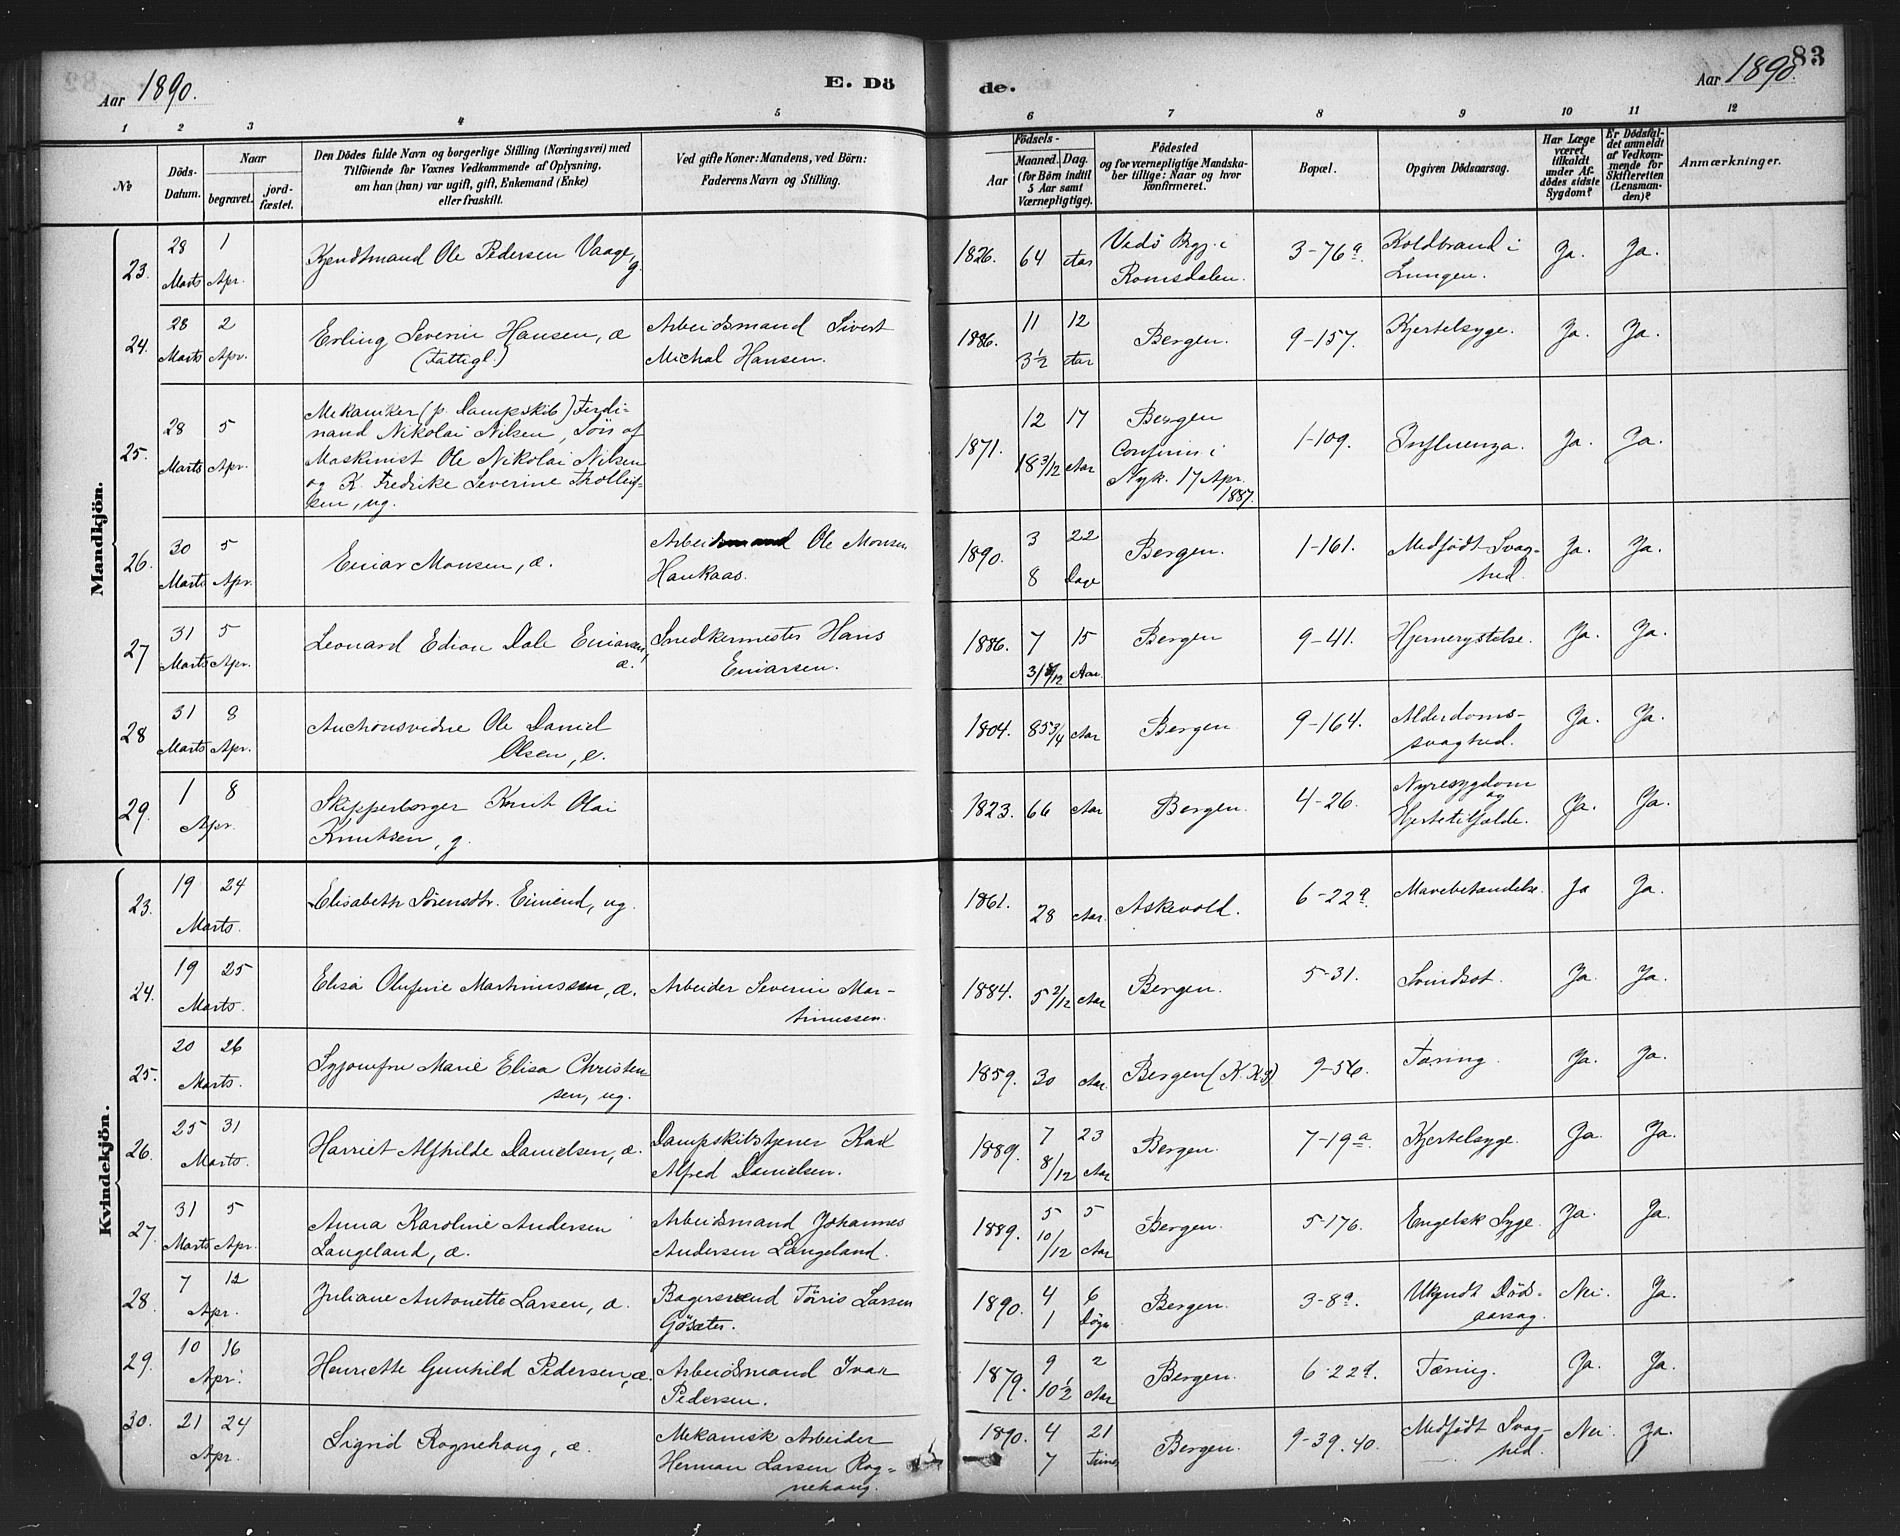 83
Aar 1890. E. Dö de. Aar 1890.
1 2 3 4 5 6 7 8 9 10 11 12
No
Döds-
Datum.
Naar
begravet.
jord-
fæstet.
Den Dödes fulde Navn og borgerlige Stilling (Næringsvei) med
Tilföiende for Voxnes Vedkommende af Oplysning,
om han (hun) var ugift, gift, Enkemand (Enke)
eller fraskilt.
Ved gifte Koner: Mandens, ved Börn:
Faderens Navn og Stilling.
Födsels-
Aar
Maaned. Dag.
(for Börn indtil
5 Aar samt
Værnepligtige).
Födested
og for værnepligtige Mandska-
ber tillige: Naar og hvor
konfirmeret.
Bopæl.
Opgiven Dödsaarsag.
Har Læge
været
tilkaldt
under Af-
dödes sidste
Sygdom?
Er Dödsfal-
det anmeldt
af Vedkom-
mende for
Skifteretten
(Lensman-
den)?
Anmærkninger.
Mandkjön.
23. 28 Marts 1 Apr. Kjendtmand Ole Pedersen Vaage, g. 1826. 64 Aar Vedö Pgj. i Romsdalen. 3-76a. Koldbrand i Lungen. Ja. Ja.
24. 28 Marts 2 Apr. Erling Severin Hansen, æ (Fattigl.) Arbeidsmand Sivert Michal Hansen. 1886. 11 12 3½ Aar Bergen. 9-157. Kjertelsyge. Ja. Ja.
25. 28 Marts 5 Apr. Mekaniker (p. Dampskib) Ferdi-
nand Nikolai Nilsen, Sön af
Maskinist Ole Nikolai Nilsen
og K. Fredrike Severine Thollefsen, ug. 1871. 12 17 18 3/12 Aar Bergen Confirm. i Nyk. 17 Apr. 1887. 1-109. Influenza. Ja. Ja.
26. 30 Marts 5 Apr. Einar Monsen, æ. Arbeidsmand Ole Monsen Haukaas. 1890. 3 22 8 Dage Bergen. 1-161. Medfödt Svag-
hed. Ja. Ja.
27 31 Marts 5 Apr. Leonard Edion Dale Einarsen, æ. Snedkermester Hans Einarsen. 1886. 7 15 3 8/12 Aar. Bergen 9-41. Hjernerystelse. Ja. Ja.
28 31 Marts 8 Apr. Auctionsvidne Ole Daniel
Olsen, e. 1804. 85 3/4 Aar Bergen. 9-164. Alderdoms-
svaghed. Ja. Ja.
29. 1 8 Apr. Skipperborger Knut Olai
Knutsen, g. 1823. 66 Aar Bergen. 4-26. Nyresygdom
og
Hjertetilfælde. Ja. Ja.
Kvindekjön.
23. 19 24 Marts. Elisabeth Sörensdtr. Eimend, ug. 1861. 28 Aar Askevold. 6-22a. Mavebetændelse. Ja Ja.
24. 19 25 Marts. Elisa Olufine Martinussen, æ. Arbeider Severin Mar-
tinussen. 1884. 5 2/12 Aar Bergen. 5-31. Svindsot. Ja. Ja.
25. 20 26 Marts. Syjomfru Marie Elisa Christen
sen, ug. 1859. 30 Aar. Bergen (K. K.) 9-56. Tæring. Ja. Ja.
26. 25 31 Marts. Harriet Alfhilde Danielsen, æ. Dampskibstjener Karl
Alfred Danielsen. 1889. 7 23 8/12 Aar Bergen. 7-19a. Kjertelsyge. Ja. Ja.
27. 31 Marts 5 Apr. Anna Karoline Andersen
Langeland, æ. Arbeidsmand Johannes
Andersen Langeland. 1889. 5 5 10/12 Aar Bergen. 5-176. Engelsk Syge. Ja. Ja.
28. 7 12 Apr. Juliane Antonette Larsen, æ. Bagersvend Törris Larsen
Gösæter. 1890. 4 6 1 Dögn Bergen. 3-8a. Ukjendt Döds-
aarsag. Nei. Ja.
29. 10 16 Apr. Henriette Gunhild Pedersen, æ. Arbeidsmand Ivar
Pedersen. 1879. 9 2 10½ Aar Bergen. 6-22a. Tæring. Ja. Ja.
30. 21 24 Apr. Sigrid Rognehaug, æ. Mekanisk Arbeider
Herman Larsen Rog-
nehaug. 1890. 4 21 7 Timer Bergen. 9-39.40. Medfödt Svag-
hed. Nei. Ja.